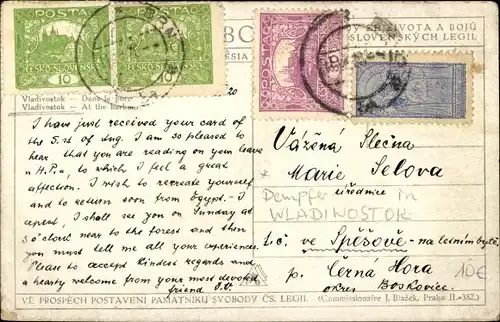 POSTA
ČESKO-SLOVENSKÁ
10
10
BRN
Y ZE ŽIVOTA A BOJŮ
OSLOVENSKÝCH LEGIÍ.
Vladivostok - Dans le port
Vladivostok - At the harbor
20
I have just received your card of
the 5.st of Aug. I am so pleased to
hear that you are reading on your leave
"H.P.", to which I feel a great
affection. I wish to recreate yourself
and to return soon from Egypt. - I
expect, I shall see you on Sunday at
3 o'clock near to the forest and then
you must tell me all your experiences.
Please to accept kindest regards and
a hearty welcome from your most devoted
friend
Vážená Slečna
Marie Selova
úřednice
Dampfer in
WLADIWOSTOK
t.č. ve Spěšově - na letním bytě
p. Černá Hora
okres Boskovice
10€
VE PROSPĚCH POSTAVENÍ PAMÁTNÍKU SVOBODY ČS. LEGIÍ. (Commissionaire J. Blažek, Praha II.-382.)